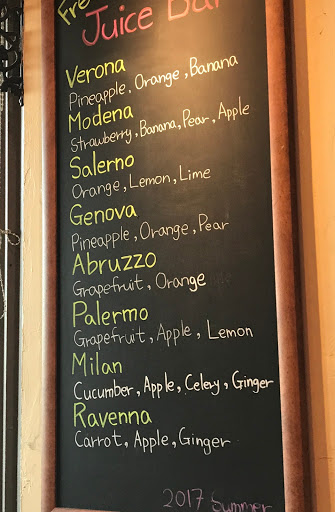 Fre
Juice Bar
Verona
Pineapple, Orange, Banana
Modena
Strawberry, Banana, Pear, Apple
Salerno
Orange, Lemon, Lime
Genova
Pineapple, Orange, Pear
Abruzzo
Grapefruit, Orange
Palermo
Grapefruit, Apple, Lemon
Milan
Cucumber, Apple, Celery, Ginger
Ravenna
Carrot, Apple, Ginger
2017 Summer